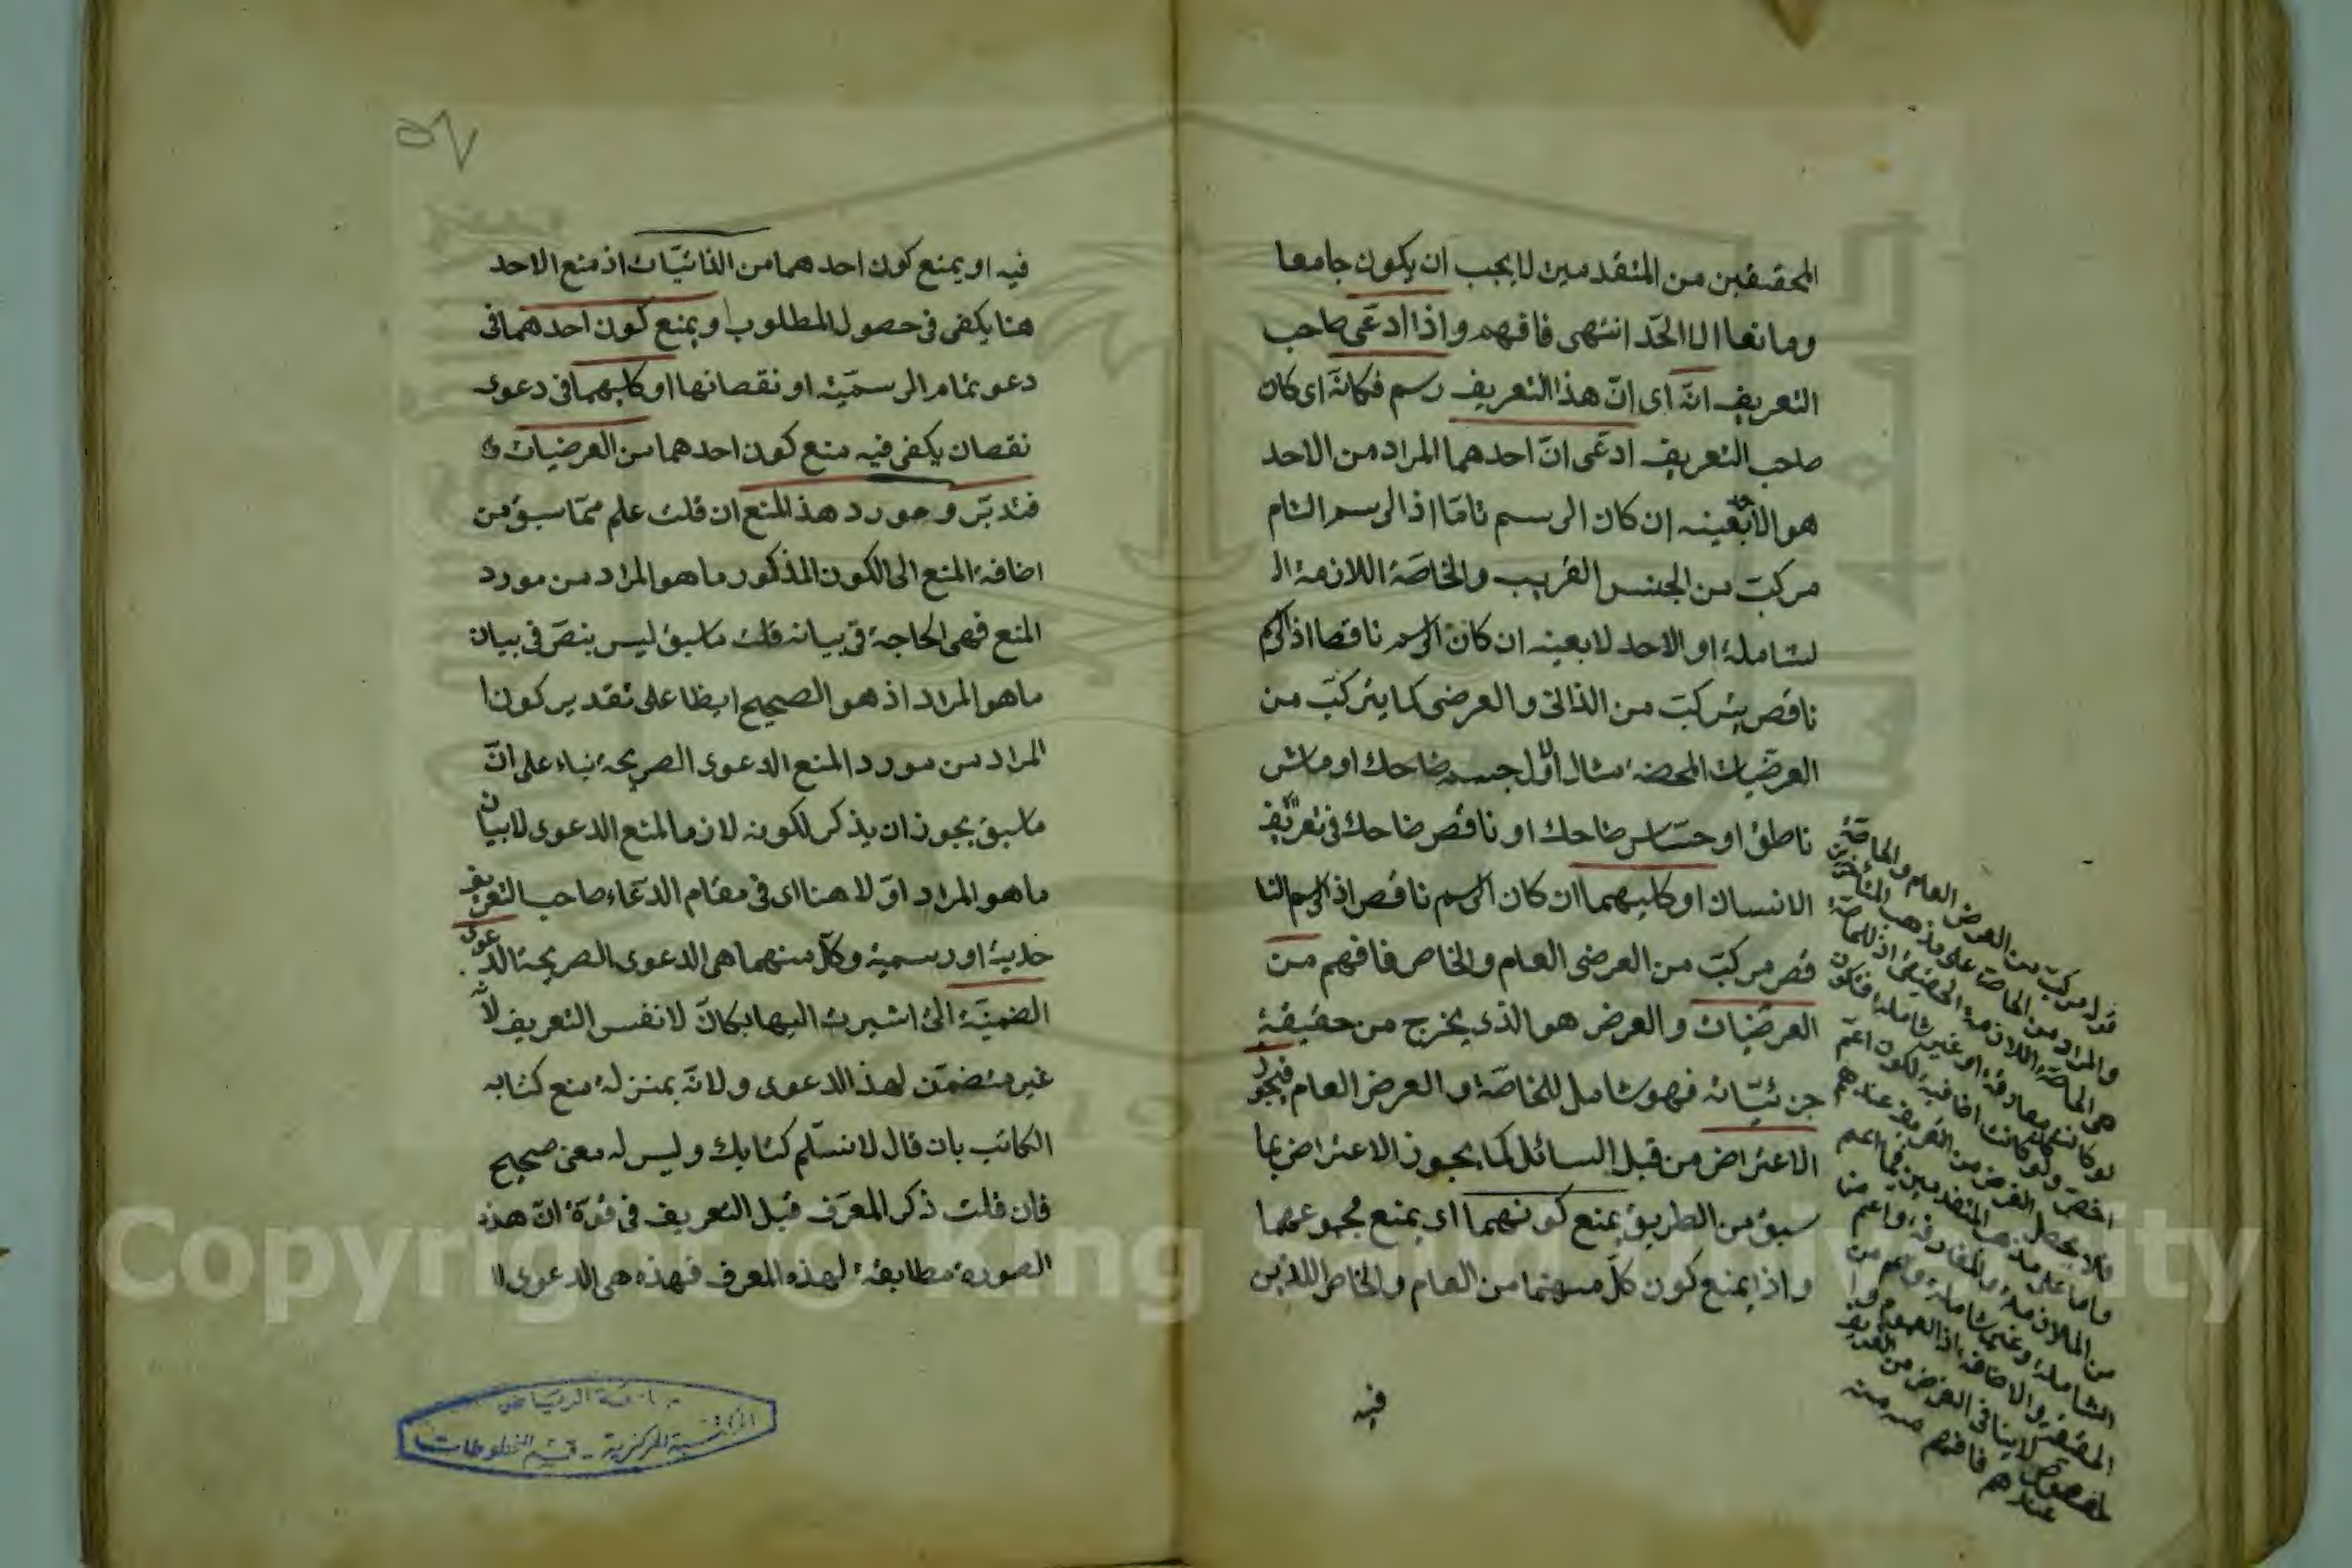 المحققين من المتقدمين لا يجب ان يكون جامعا
ومانعا الا الحد انتهى فافهم واذا ادعى صاحب
التعريف انه اى ان هذا التعريف رسم فكانه اى كان
صاحب التعريف ادعى ان احدهما المراد من الاحد
هو الا بعينه ان كان الرسم تاما اذ الرسم التام
مركب من الجنس القريب والخاصة اللازمة ال
لشاملة او الاحد لا بعينه ان كان الرسم ناقصا اذ الرسم
ناقص يتركب من الذاتى والعرضى كما يتركب من
العرضيات المحضة مثال الاول جسم ضاحك او ماش
ناطق او حساس ضاحك او ناقص ضاحك فى تعريف
الانسان او كليهما ان كان الرسم ناقص اذ الرسم النا
قص مركب من العرضى العام والخاص فافهم من
العرضيات والعرض هو الذى يخرج من حقيقية
جزئياته فهو شامل للخاصة والعرض العام فيجوز
الاعتراض من قبل السائل كما يجوز الاعتراض بما
سبق من الطريق بمنع كونهما اى بمنع مجموعهما
واذا يمنع كون كل منهما من العام والخاص اللذين
فيه
قوله مركب من العرض العام والخاصة
والمراد من الخاصة على مذهب المتأخرين
هى الخاصة اللازمة الحقيقى اذ للخاصة
لو كانت مفارقة او غير شاملة فتكون
اخص ولو كانت اضافية لكون اعم
فلا يحصل الغرض من التعريف عندهم
واما على مذهب المتقدمين فما اعم
من الملازمة والمفارقة واعم من
الشاملة وغير شاملة واعم من
الحقيقة والاضافة اذ العموم وا
لخصوص لا ينافى الغرض من التعريف
عندهم فافهم منه
٥٧
فيه او يمنع كون احدهما من الذاتيات اذ منع الاحد
هنا يكفى فى حصول المطلوب او يمنع كون احدهما فى
دعو تمام الرسمية او نقصانها او كليهما فى دعوى
نقصان يكفى فيه منع كون احدهما من العرضيات
فتدبر ومورد هذا المنع ان قلت علم مما سبق من
اضافة المنع الى الكون المذكور ما هو المراد من مورد
المنع فهى الحاجة فى بيانه قلت ما سبق ليس بنص فى بيان
ما هو المراد اذ هو الصحيح ايظا على تقدير كون ا
لمراد من مورد المنع الدعوى الصريحة بناء على ان
ما سبق يجوز ان يذكر لكونه لازما لمنع الدعوى لا بيان
ما هو المراد اولا هنا اى فى مقام الدعاء صاحب التعريف
حدية او رسمية وكل منهما هى الدعوى الصريحة الدعوى
الضمنية التى اشيرت اليها بكان لا نفس التعريف لانه
غير متضمن لهذا الدعوى ولانه بمنزلة منع كتابه
الكاتب بان قال لا نسلم كتابك وليس له معنى صحيح
فان قلت ذكر المعرف قبل التعريف فى قوة ان هذه
الصورة مطابقة لهذه المعرف فهذه هى الدعوى لا
جامعة الرياض
المكتبة المركزية - قسم المخطوطات
Copyright © King Saud University